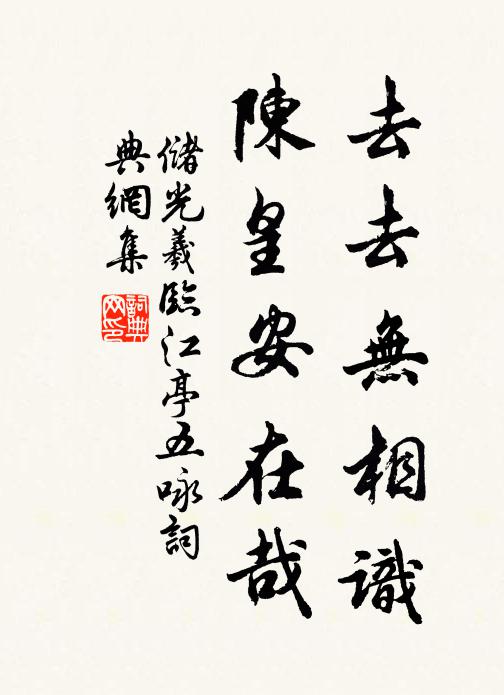 去去無相識
陳皇安在哉
儲光羲臨江亭五咏詞
典網集
詞典網印